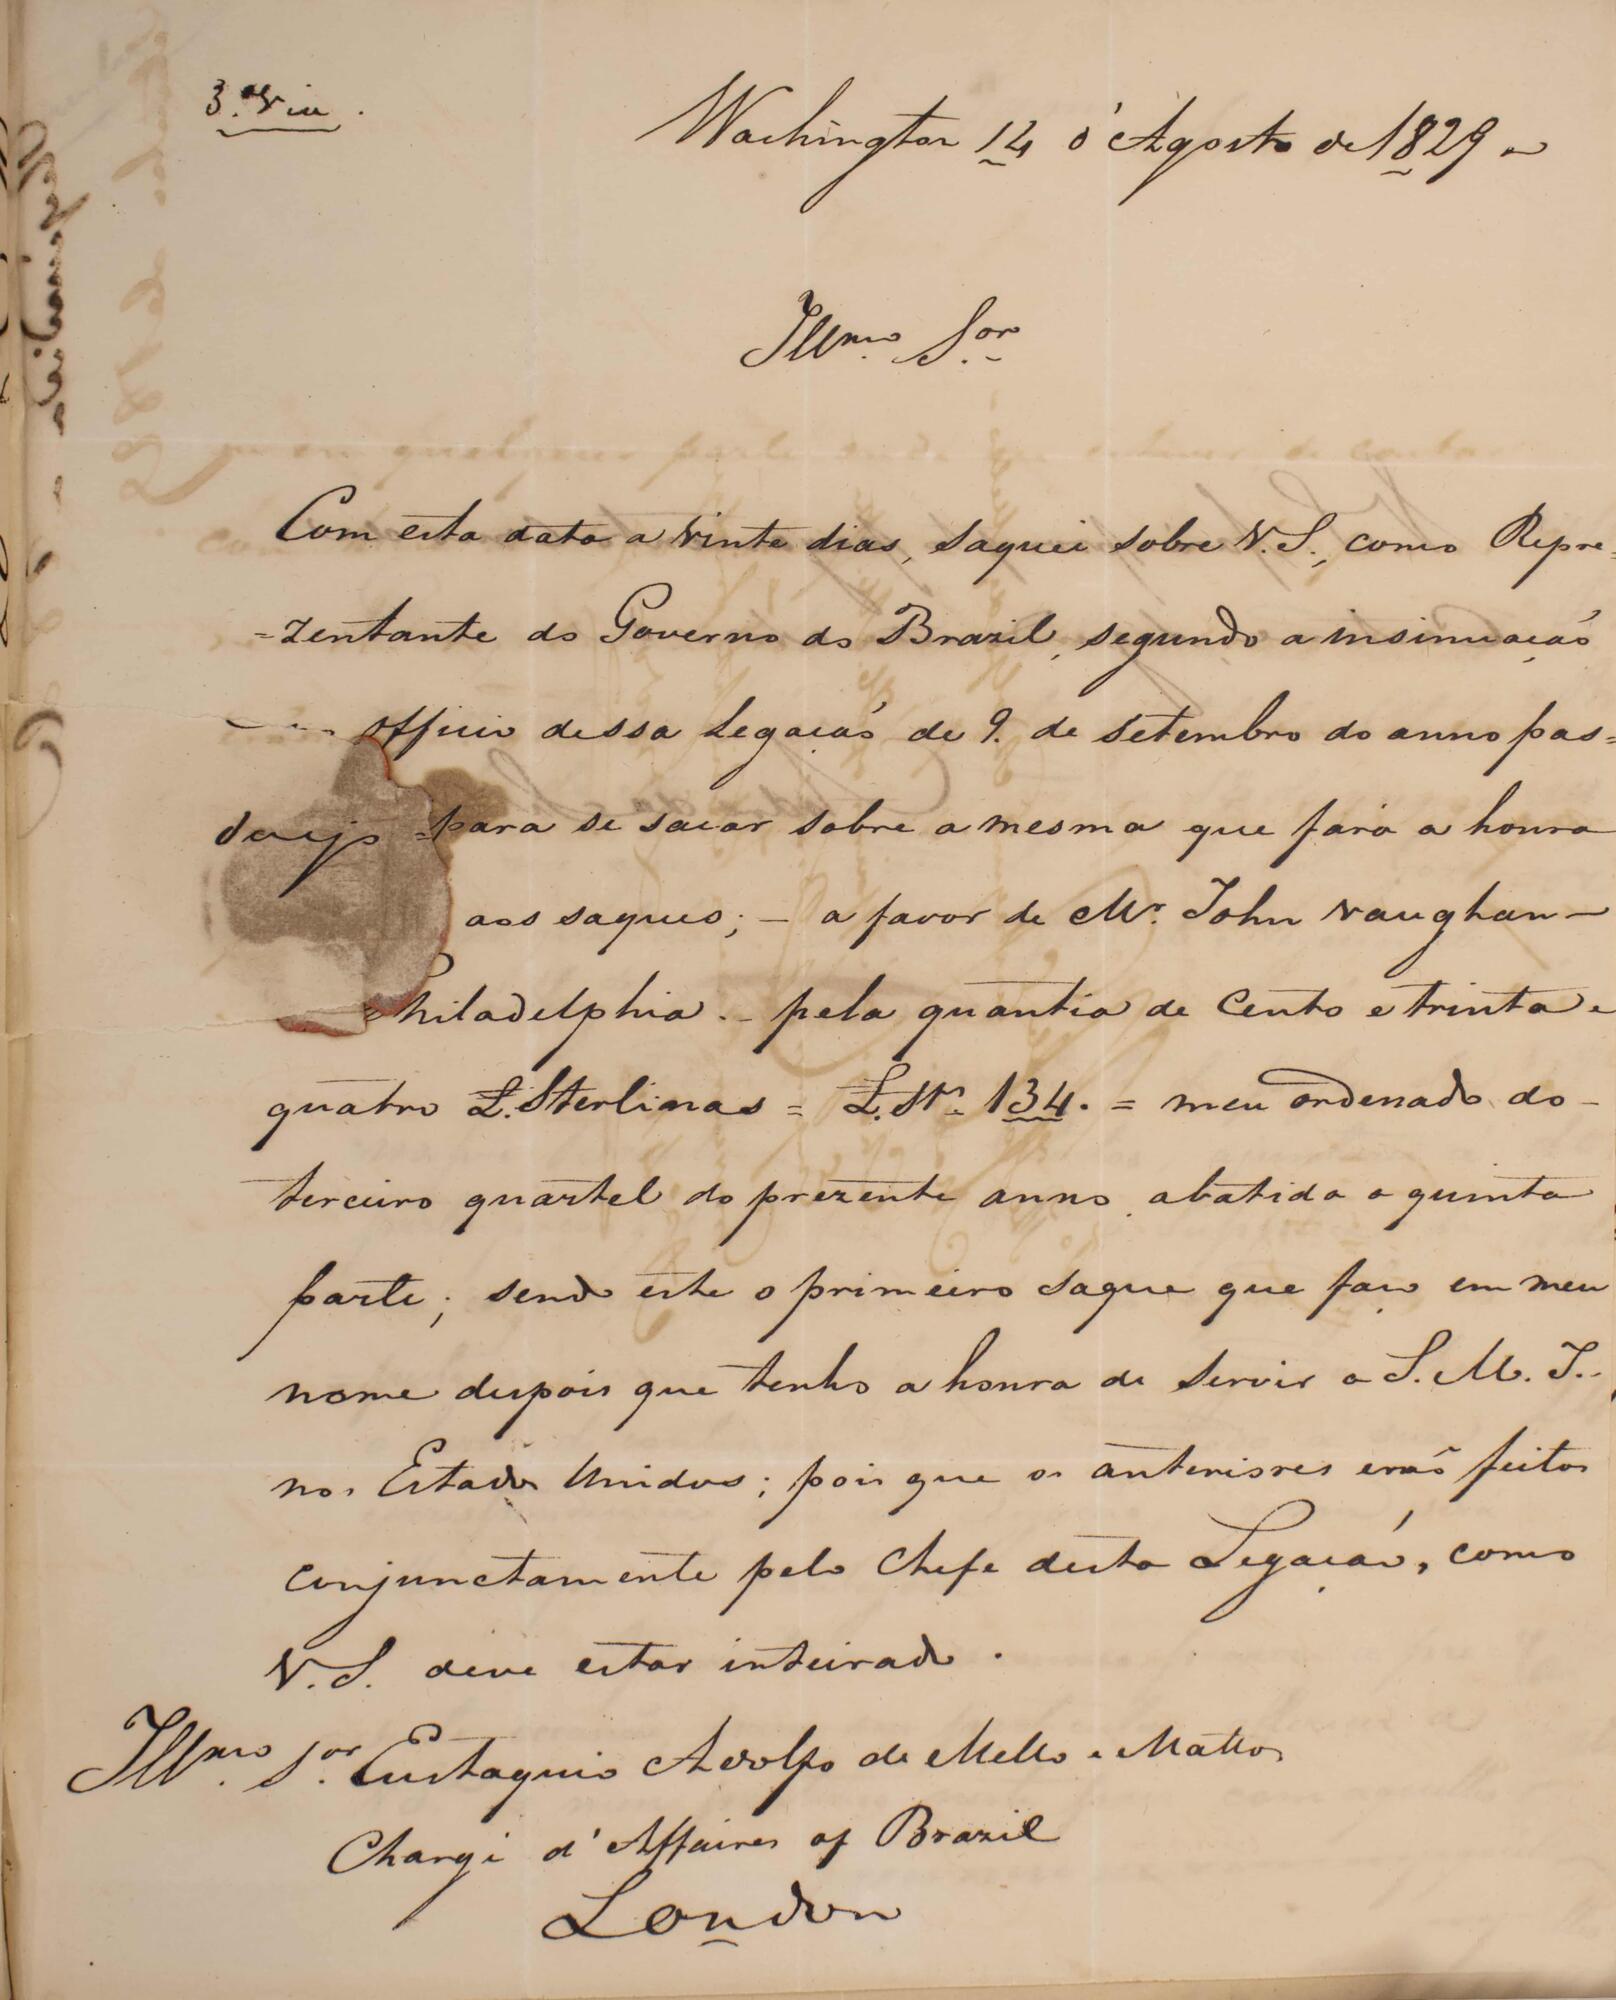 3.ª Via.
Washington 14 d'Agosto de 1829
Illmo. Sor.
Com esta data a vinte dias, saquei sobre V.S., como Repre=
=zentante do Governo do Brazil, segundo a insinuaçaõ
officio dessa Legaçaõ de 9. de setembro do anno pas=
para se sacar sobre a mesma que fará a honra
aos saques; - a favor de Mr. John Vaughan -
Philadelphia. - pela quantia de Cento e trinta e
quatro £.Sterlinas = £.Str. 134. = meu ordenado do -
terceiro quartel do prezente anno abatida a quinta
parte; sendo este o primeiro saque que faço em meu
nome depois que tenho a honra de servir a S.M.I.
nos Estados Unidos; pois que os anteriores eraõ feitos
conjunctamente pelo Chefe desta Legaçaõ, como
V.S. deve estar inteirado.
Illmo. Sor. Eustaquio Adolfo de Mello e Mattos
Chargé d'Affaires of Brazil
London